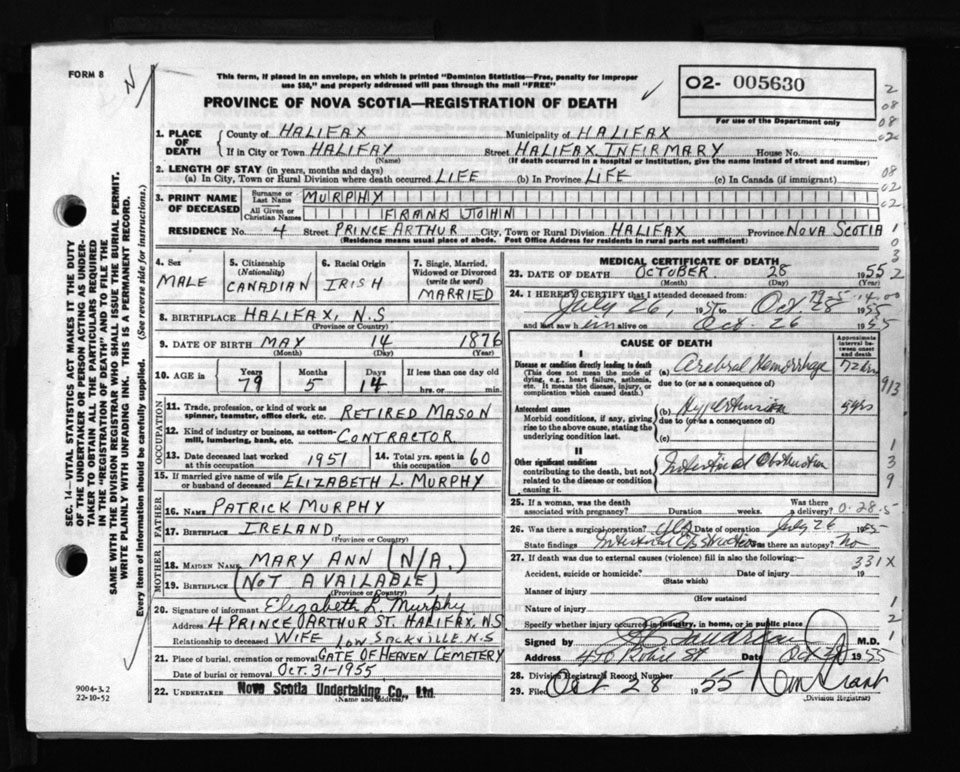 FORM 8
N
This form, if placed in an envelope, on which is printed "Dominion Statistics—Free, penalty for improper
use $50," and properly addressed will pass through the mail "FREE"
PROVINCE OF NOVA SCOTIA—REGISTRATION OF DEATH
02- 005630
For use of the Department only
1. PLACE OF DEATH
County of HALIFAX Municipality of HALIFAX
If in City or Town HALIFAX (Name) Street HALIFAX INFIRMARY House No.
(If death occurred in a hospital or institution, give the name instead of street and number)
2. LENGTH OF STAY (in years, months and days)
(a) In City, Town or Rural Division where death occurred LIFE (b) In Province LIFE (c) In Canada (if immigrant)
3. PRINT NAME OF DECEASED
Surname or Last Name MURPHY
All Given or Christian Names FRANK JOHN
RESIDENCE No. 4 Street PRINCE ARTHUR City, Town or Rural Division HALIFAX Province NOVA SCOTIA
(Residence means usual place of abode. Post Office Address for residents in rural parts not sufficient)
4. Sex MALE
5. Citizenship (Nationality) CANADIAN
6. Racial Origin IRISH
7. Single, Married, Widowed or Divorced (write the word) MARRIED
8. BIRTHPLACE HALIFAX, N.S.
(Province or Country)
9. DATE OF BIRTH MAY 14 1876
(Month) (Day) (Year)
10. AGE Years 79 Months 5 Days 14 If less than one day old hrs. or min.
OCCUPATION
11. Trade, profession, or kind of work as spinner, teamster, office clerk, etc. RETIRED MASON
12. Kind of industry or business, as cotton-mill, lumbering, bank, etc. CONTRACTOR
13. Date deceased last worked at this occupation 1951 14. Total yrs. spent in this occupation 60
15. If married give name of wife or husband of deceased ELIZABETH L. MURPHY
FATHER
16. NAME PATRICK MURPHY
17. BIRTHPLACE IRELAND
(Province or Country)
MOTHER
18. MAIDEN NAME MARY ANN (N/A.)
19. BIRTHPLACE (NOT AVAILABLE)
(Province or Country)
20. Signature of informant Elizabeth L. Murphy
Address 4 PRINCE ARTHUR ST. HALIFAX, N.S
Relationship to deceased WIFE LOW SACKVILLE, N.S
21. Place of burial, cremation or removal GATE OF HEAVEN CEMETERY
Date of burial or removal OCT. 31-1955
22. UNDERTAKER Nova Scotia Undertaking Co., Ltd.
(Name and Address)
MEDICAL CERTIFICATE OF DEATH
23. DATE OF DEATH OCTOBER 28 1955
(Month) (Day) (Year)
24. I HEREBY CERTIFY that I attended deceased from:
July 26, 1955 to Oct. 28 1955
and last saw him alive on Oct. 26 1955
CAUSE OF DEATH
Approximate interval between onset and death
I
Disease or condition directly leading to death
(This does not mean the mode of dying, e.g., heart failure, asthenia, etc. It means the disease, injury, or complication which caused death.)
(a) Cerebral Hemorrhage 72 hrs
due to (or as a consequence of)
Antecedent causes
Morbid conditions, if any, giving rise to the above cause, stating the underlying condition last.
(b) Hypertension 5 yrs
due to (or as a consequence of)
(c)
II
Other significant conditions contributing to the death, but not related to the disease or condition causing it.
Intestinal Obstruction
25. If a woman, was the death associated with pregnancy? Duration weeks. Was there a delivery?
26. Was there a surgical operation? Yes Date of operation July 26 1955
State findings Intestinal Obstruction Was there an autopsy? no
27. If death was due to external causes (violence) fill in also the following:— 331X
Accident, suicide or homicide? Date of injury 19
(State which)
Manner of injury
(How sustained)
Nature of injury
Specify whether injury occurred in industry, in home, or in public place
Signed by M.D.
Address 470 Robie St Date 1955
28. Division Registrar's Record Number
29. Filed Oct 28 1955
(Division Registrar)
9004-3.2
22-10-52
SEC. 14—VITAL STATISTICS ACT MAKES IT THE DUTY
OF THE UNDERTAKER OR PERSON ACTING AS UNDER-
TAKER TO OBTAIN ALL THE PARTICULARS REQUIRED
IN THE "REGISTRATION OF DEATH" AND TO FILE THE
SAME WITH THE DIVISION REGISTRAR WHO SHALL ISSUE THE BURIAL PERMIT.
WRITE PLAINLY WITH UNFADING INK. THIS IS A PERMANENT RECORD.
Every item of information should be carefully supplied. (See reverse side for instructions.)